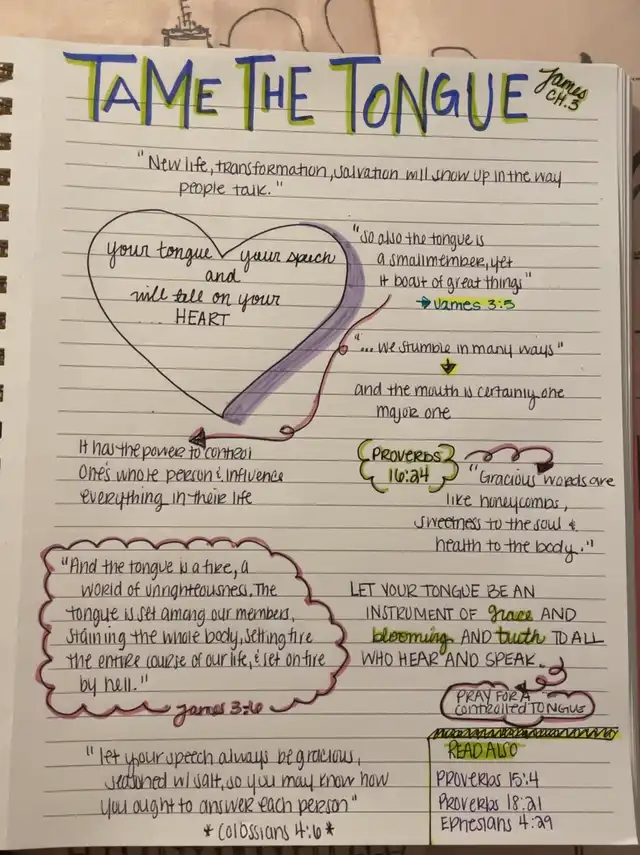 TAME THE TONGUE
James
CH. 3
"New life, transformation, salvation will show up in the way
people talk."
your tongue your speech
and
will tell on your
HEART
"So also the tongue is
a small member, yet
it boast of great things"
James 3:5
"... we stumble in many ways"
and the mouth is certainly one
major one
It has the power to control
one's whole person & influence
everything in their life
PROVERBS
16:24
"Gracious words are
like honeycombs,
sweetness to the soul &
health to the body."
"And the tongue is a fire, a
world of unrighteousness. The
tongue is set among our members,
staining the whole body, setting fire
the entire course of our life, & set on fire
by hell."
James 3:6
LET YOUR TONGUE BE AN
INSTRUMENT OF grace AND
blooming AND truth TO ALL
WHO HEAR AND SPEAK.
PRAY FOR A
controlled TONGUE
"let your speech always be gracious,
seasoned w/ salt, so you may know how
you ought to answer each person"
*Colossians 4:6*
READ ALSO
Proverbs 15:4
Proverbs 18:21
Ephesians 4:29